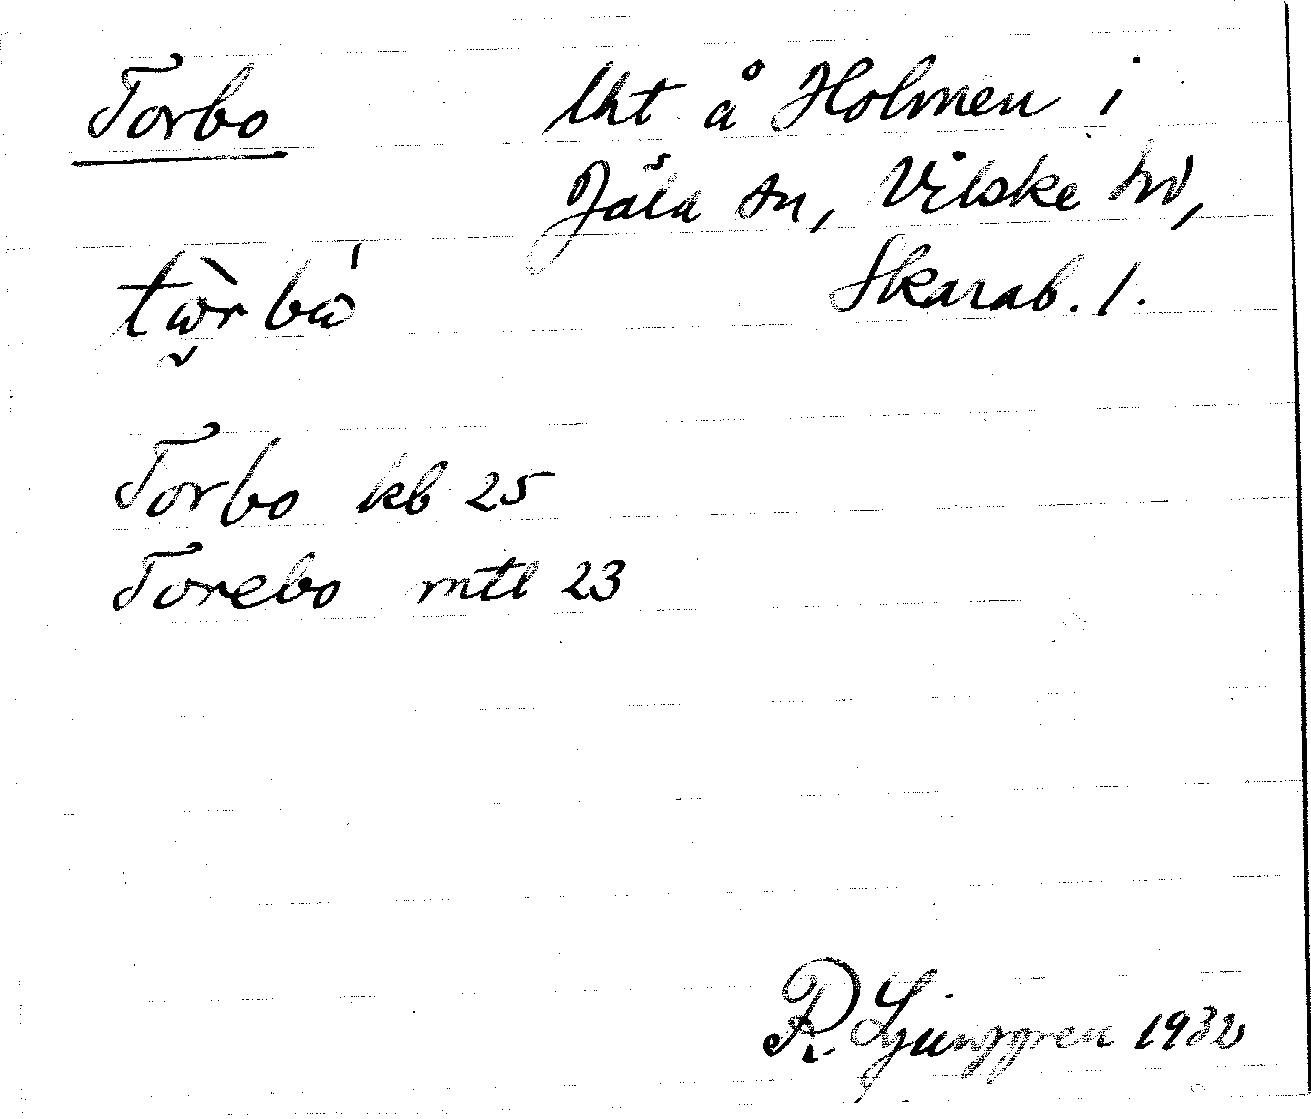 Torbo lht å Holmen i
Jäla sn, Vilske hd,
Skarab. l.
Torbo kb 25
Torebo mtl 23
R. Ljunggren 1932